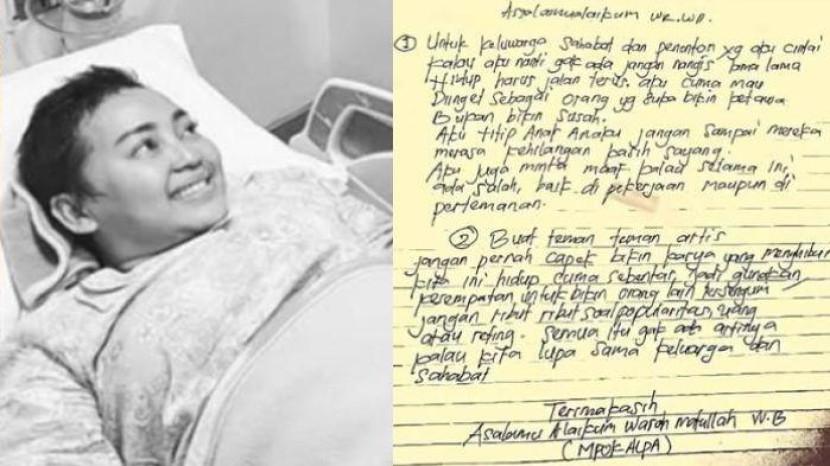 Assalamualaikum WR.WB.
① Untuk keluwarga sahabat dan penonton yg aku cintai
kalau aku nanti gak ada jangan nangis lama lama
Hidup harus jalan terus. aku cuma mau
Diinget sebagai orang yg suka bikin ketawa
Bukan bikin susah.
Aku titip Anak Anaku jangan sampai mereka
merasa kehilangan kasih sayang.
Aku juga minta maaf kalau selama ini,
ada salah, baik di pekerjaan maupun di
pertemanan.
② Buat teman teman artis
jangan pernah capek bikin karya yang menghibur
kita ini hidup cuma sebentar, jadi gunakan
kesempatan untuk bikin orang lain tersenyum
jangan ribut ribut soal popularitas, uang
atau reting. Semua itu gak ada artinya
kalau kita lupa sama keluarga dan
sahabat
Terimakasih
Asalamu Alaikum Warah matullah W.B
(MPOK-ALPA)